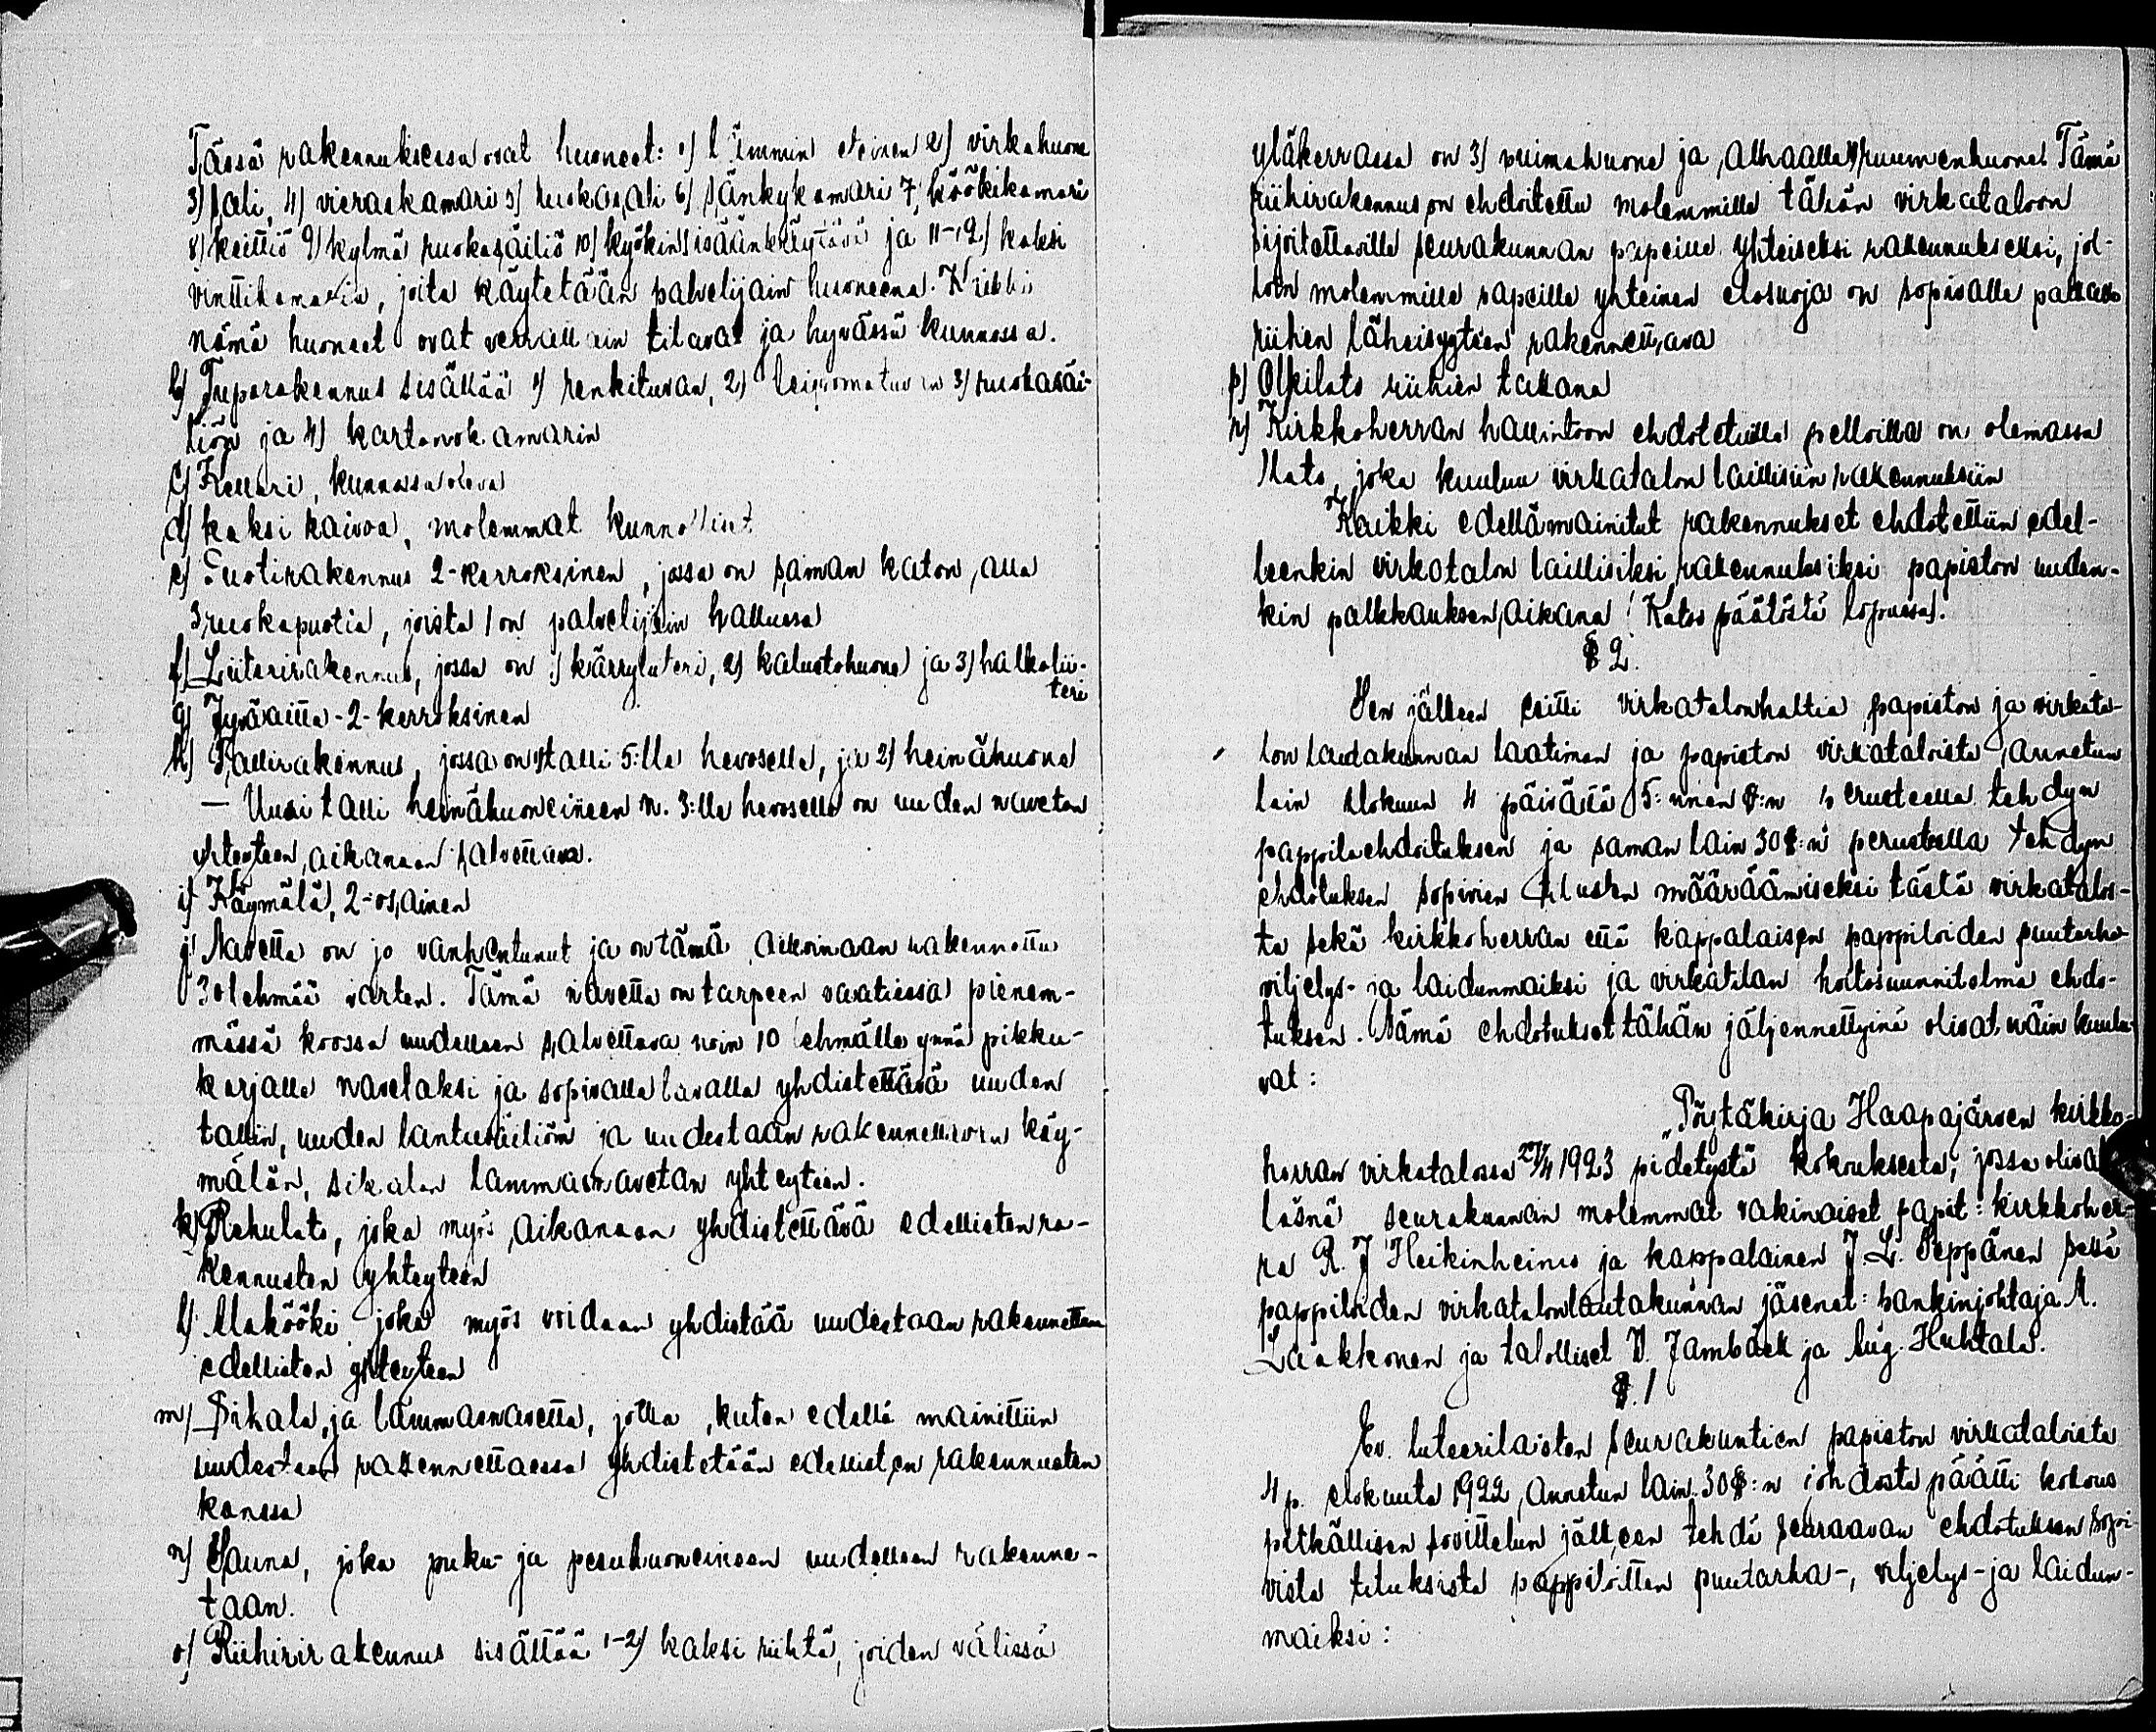 Tässä rakennuksessa ovat huoneet: 1) lämmin eteinen 2) virkahuone
3) sali, 4) vieraskamari 5) ruokasali 6) sänkykamari 7) köökikamari
8) keittiö 9) kylmä ruokasäiliö 10) kyökin sisäänkäytävä ja 11-12) kaksi
vinttikamaria, joita käytetään palvelijain huoneena. Kaikki
nämä huoneet ovat verrattain tilavat ja hyvässä kunnossa.
b) Tuparakennus sisältää 1) renkituvan, 2) leipomatuvan 3) ruokasäi-
liön ja 4) kartanokamarin
c) Kellari, kunnossa oleva
d) kaksi kaivoa, molemmat kunnolliset
e) Puotirakennus 2-kerroksinen, jossa on saman katon alla
3 ruokapuotia, joista 1 on palvelijain hallussa
f) Liiterirakennus, jossa on 1) kärryliiteri, 2) kalustohuone ja 3) halkolii-
teri
g) Jyväaitta - 2-kerroksinen
h) Tallirakennus, jossa on 1) talli 5:lle hevoselle, ja 2) heinähuone
— Uusi talli heinähuoneineen n. 3:lle hevoselle on uuden navetan
yhteyteen aikanaan salvettava.
i) Käymälä, 2-osainen
j) Navetta on jo vanhentunut ja on tämä aikoinaan rakennettu
30 lehmää varten. Tämä navetta on tarpeen vaatiessa pienem-
mässä koossa uudelleen salvettava noin 10 lehmälle ynnä pikku-
karjalle navetaksi ja sopivalla tavalla yhdistettävä uuden
tallin, uuden lantasäiliön ja uudestaan rakennettavan käy-
mälän, sikalan lammasnavetan yhteyteen.
k) Rehulato, joka myös aikanaan yhdistettävä edellisten ra-
kennusten yhteyteen
l) Makööki joka myös voidaan yhdistää uudestaan rakennettuna
edellisten yhteyteen
m) Sikala ja lammasnavetta, jotka, kuten edellä mainittiin
uudestaan rakennettaessa yhdistetään edellisten rakennusten
kanssa
n) Sauna, joka puku- ja pesuhuoneineen uudelleen rakenne-
taan.
o) Riihirirakennus sisältää 1-2) kaksi riihtä, joiden välissä
yläkerrassa on 3) puimahuone ja alhaalla 4) ruumenhuone. Tämä
riihirakennus on ehdoitettu molemmille tähän virkataloon
sijoitettaville seurakunnan papeille yhteiseksi rakennukseksi, jol-
loin molemmille papeille yhteinen elosuoja on sopivalle paikalle
riihen läheisyyteen rakennettava
p) Olkilato riihien takana
r) Kirkkoherran hallintoon ehdotetuilla pelloilla on olemassa
lato, joka kuuluu virkatalon laillisiin rakennuksiin
Kaikki edellämainitut rakennukset ehdotettiin edel-
leenkin virkatalon laillisiksi rakennuksiksi papiston uuden-
kin palkkauksen aikana! Katso päätöstä lopussa).
§ 2.
Sen jälkeen esitti virkatalonhaltia papiston ja virkata-
lon lautakunnan laatiman ja papiston virkataloista annetun
lain elokuun 4 päivältä 5:nnen §:n perusteella tehdyn
pappilaehdoituksen ja saman lain 30 §:n perusteella tehdyn
ehdotuksen sopivien tilusten määräämiseksi tästä virkatalos-
ta sekä kirkkoherran että kappalaisen pappiloiden puutarha-
viljelys- ja laidunmaiksi ja virkatilan hoitosuunnitelma ehdo-
tuksen. Nämä ehdotukset tähän jäljennettyinä olivat näin kuulu-
vat:
„Pöytäkirja Haapajärven kirkko-
herran virkatalossa 27/4 1923 pidetystä kokouksesta, jossa olivat
läsnä seurakunnan molemmat vakinaiset papit: kirkkoher-
ra R. J Heikinheimo ja kappalainen J. L. Seppänen sekä
pappiloiden virkatalonlautakunnan jäsenet: pankinjohtaja A.
Laakkonen ja talolliset V. Jämbäck ja Aug. Huhtala.
§. 1
Ev. luteerilaisten seurakuntien papiston virkataloista
4 p. elokuuta 1922, annetun lain 30 §:n johdosta päätti kokous
pitkällisen sovittelun jälkeen tehdä seuraavan ehdotuksen sopi-
vista tiluksista pappiloitten puutarha-, viljelys- ja laidun-
maiksi: